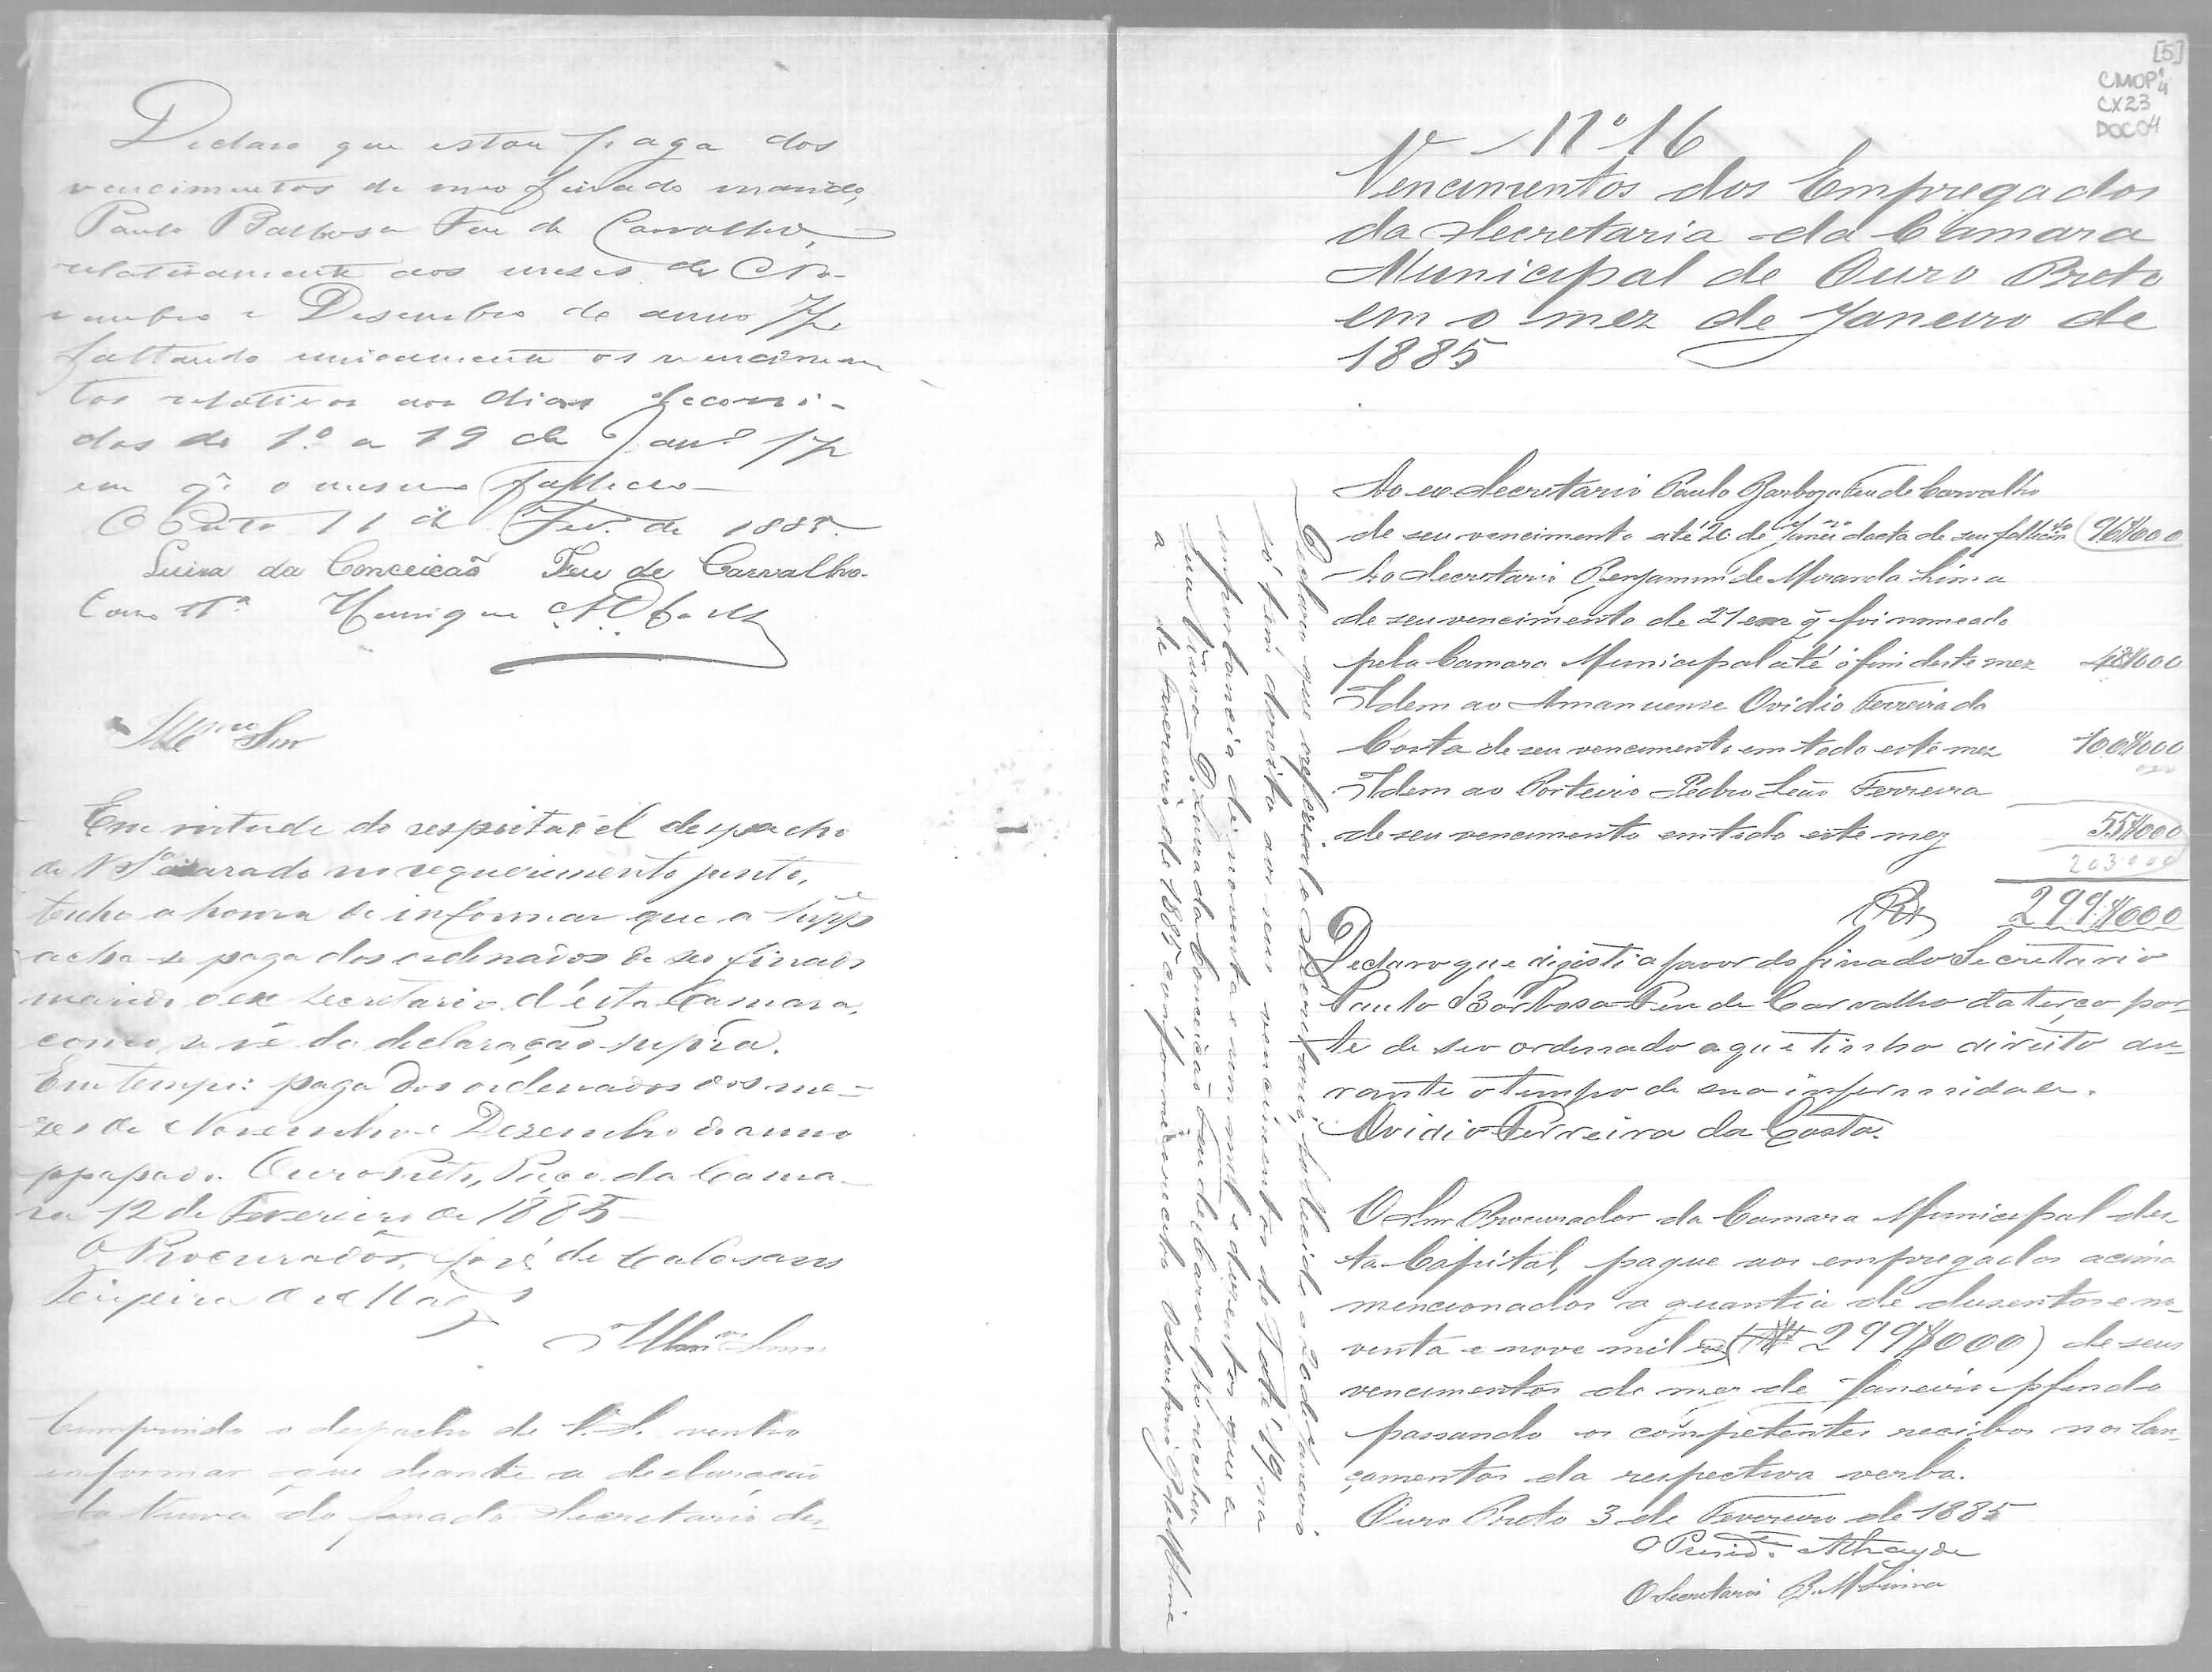 Declaro que estou paga dos
vencimentos de meo finado marido,
Paulo Barbosa Feu de Carvalho,
relativamente aos meses de No-
vembro e Desembro do anno pp.
faltando unicamente os vencimen
tos relativos aos dias decorri-
dos do 1.º a 19 de Janº pp
em q̃ o mesmo falleceo
O Preto 11 de Fev.º de 1885.
Luiza da Conceicão Feu de Carvalho.
Como Tª Henrique
Illmo Snr
Em virtude do respeitavel despacho
de VSª exarado no requerimento junto,
tenho a honra de informar que a Supp
acha-se paga dos ordenados de seo finado
marido o ex Secretario d'ésta Camara,
como se vê da declaração supra.
Em tempo: paga dos ordenados dos me-
zes de Novembro e Dezembro do anno
ppassado. Ouro Preto, Paço da Cama-
ra 12 de Fevereiro de 1885
O Procurador, José de Calasans
Illmo Snr
Cumprindo o despacho de V.S. venho
informar que diante a declaração
da viuva do finado Secretario des-
[5]
CMOP
CX23
DOC04
Nº 16
Vencimentos dos Empregados
da Secretaria da Camara
Municipal de Ouro Preto
em o mez de Janeiro de
1885
Ao ex Secretario Paulo Barboza Feu de Carvalho
de seu vencimento até 20 de Janeiro dacta de seu fallecimto 96$000
Ao Secretario Benjamim de Miranda Lima
de seu vencimento de 21 em q̃ foi nomeado
pela Camara Municipal até o fim deste mez 48$000
Idem ao Amanuense Ovidio Ferreira da
Costa de seu vencimento em todo este mez 100$000
Idem ao Porteiro Pedro Leão Ferreira
de seu vencimento em todo este mez 55$000
203000
Rs 299$000
Declaro que disisti a favor do finado Secretario
Paulo Barbosa Feu de Carvalho da terça par-
te de seu ordenado a que tinha direito du-
rante o tempo de sua infermidade.
Ovidio Ferreira da Costa.
O Snr Procurador da Camara Municipal des-
ta Capital, pague aos empregados acima
mencionados a quantia de dusentos e no-
venta e nove mil rs (Rs 299$000) de seus
vencimentos do mez de Janeiro pfindo
passando os competentes recibos nos lan-
çamentos da respectiva verba.
Ouro Preto 3 de Fevereiro de 1885
O Presid.te Athayde
O Secretario B. M Lima
Declaro que o referido Secretario, fallecido a 20 de Janeiro
só tem dereito aos seus vencimentos do 1º até 19 na
importancia de noventa e um mil e duzentos que a
sua viuva D. Luiza da Conceição Feu de Carvalho recebeu
a de fevereiro de 1885 conforme o recibo O Secretario